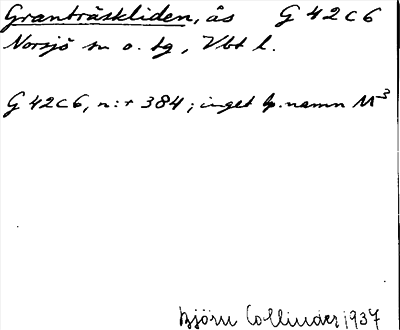 Granträskliden, ås G 42 C 6
Norsjö sn o. tg, Vbt l.
G 42 C 6, n:r 384; inget b.namn M³
Björn Collinder 1937